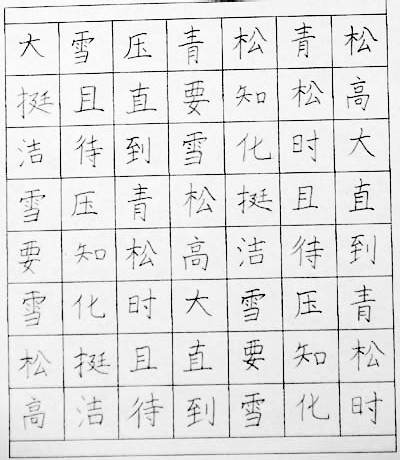 大雪压青松青松
挺且直要知松高
洁待到雪化时大
雪压青松挺且直
要知松高洁待到
雪化时大雪压青
松挺且直要知松
高洁待到雪化时